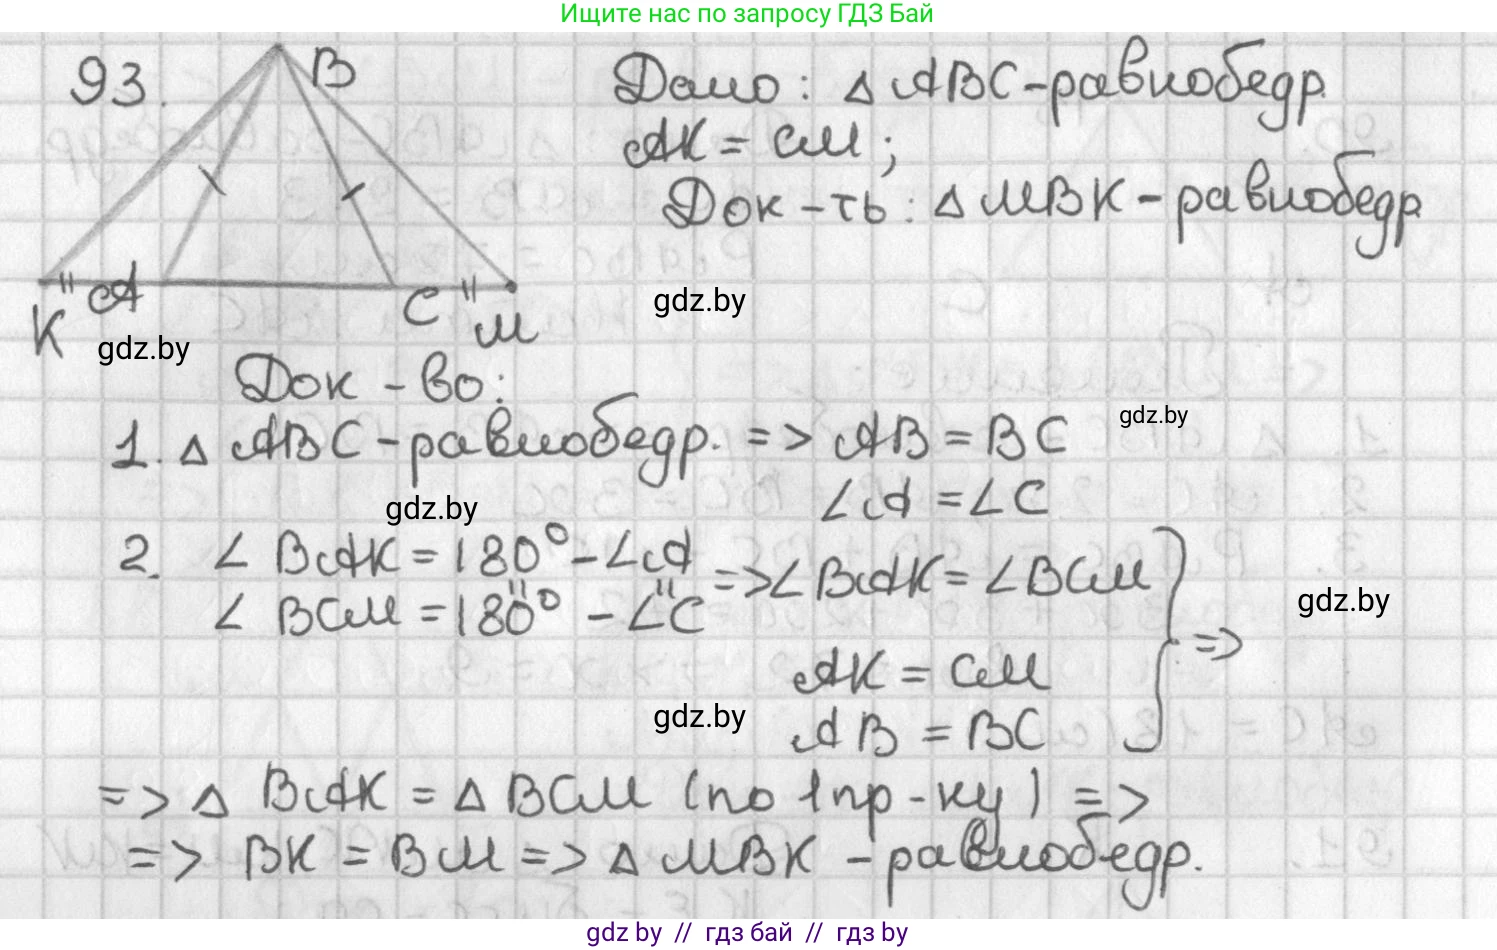 Ищите нас по запросу ГДЗ Бай
93.
B
Дано: △ ABC-равнобедр.
AK = CM;
Док-ть: △ MBK - равнобедр
K
A
C
M
gdz.by
gdz.by
Док-во:
1. △ ABC-равнобедр. => AB = BC
gdz.by
∠A = ∠C
gdz.by
2. ∠ BAK = 180° - ∠A
∠ BCM = 180° - ∠C
=> ∠BAK = ∠BCM
gdz.by
=>
AK = CM
gdz.by
AB = BC
=> △ BAK = △ BCM (по 1 пр-ку) =>
=> BK = BM => △ MBK - равнобедр.
gdz by // гдз бай // гдз by